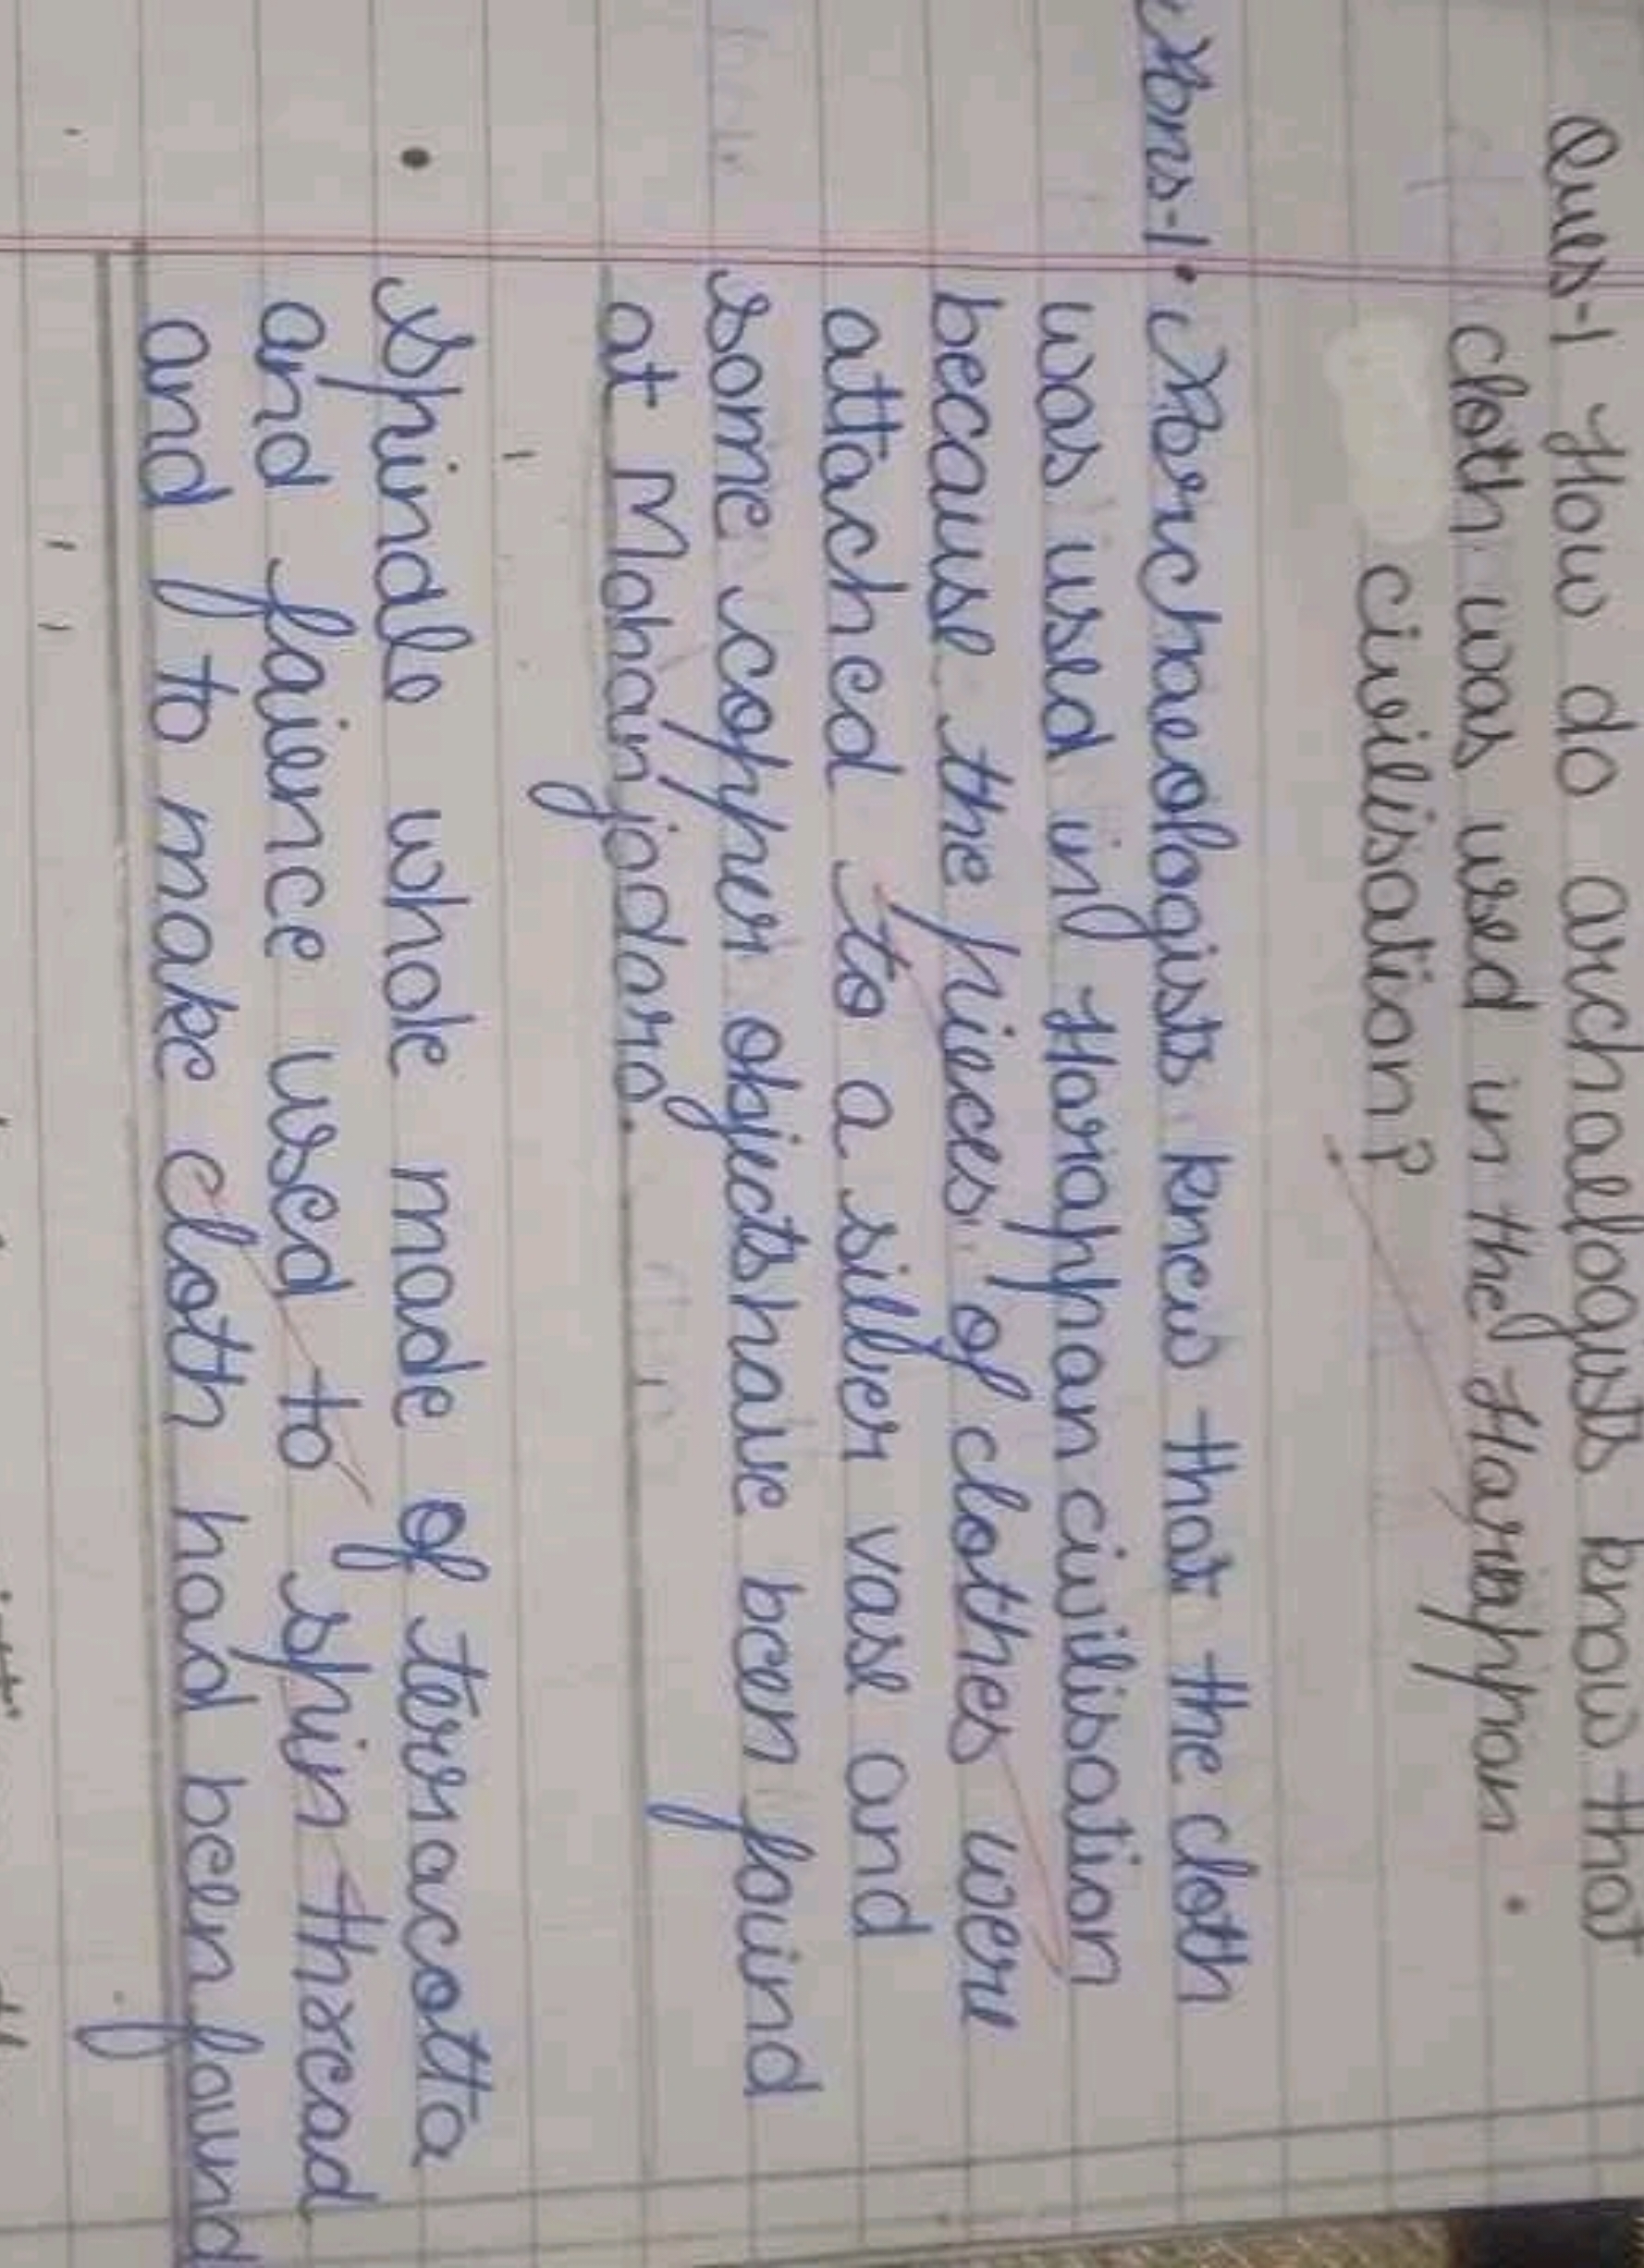 Ques-1 How do archaelogists know that
cloth was used in the Harappan
civilisation?
Ans-1 • Archaeologists knew that the cloth
was used in Harappan civilisation
because the pieces of clothes were
attached to a silver vase and
some copper objects have been found
at Mohanjodaro.
• Spindle whole made of terracotta
and faience used to spin thread
and to make cloth had been found